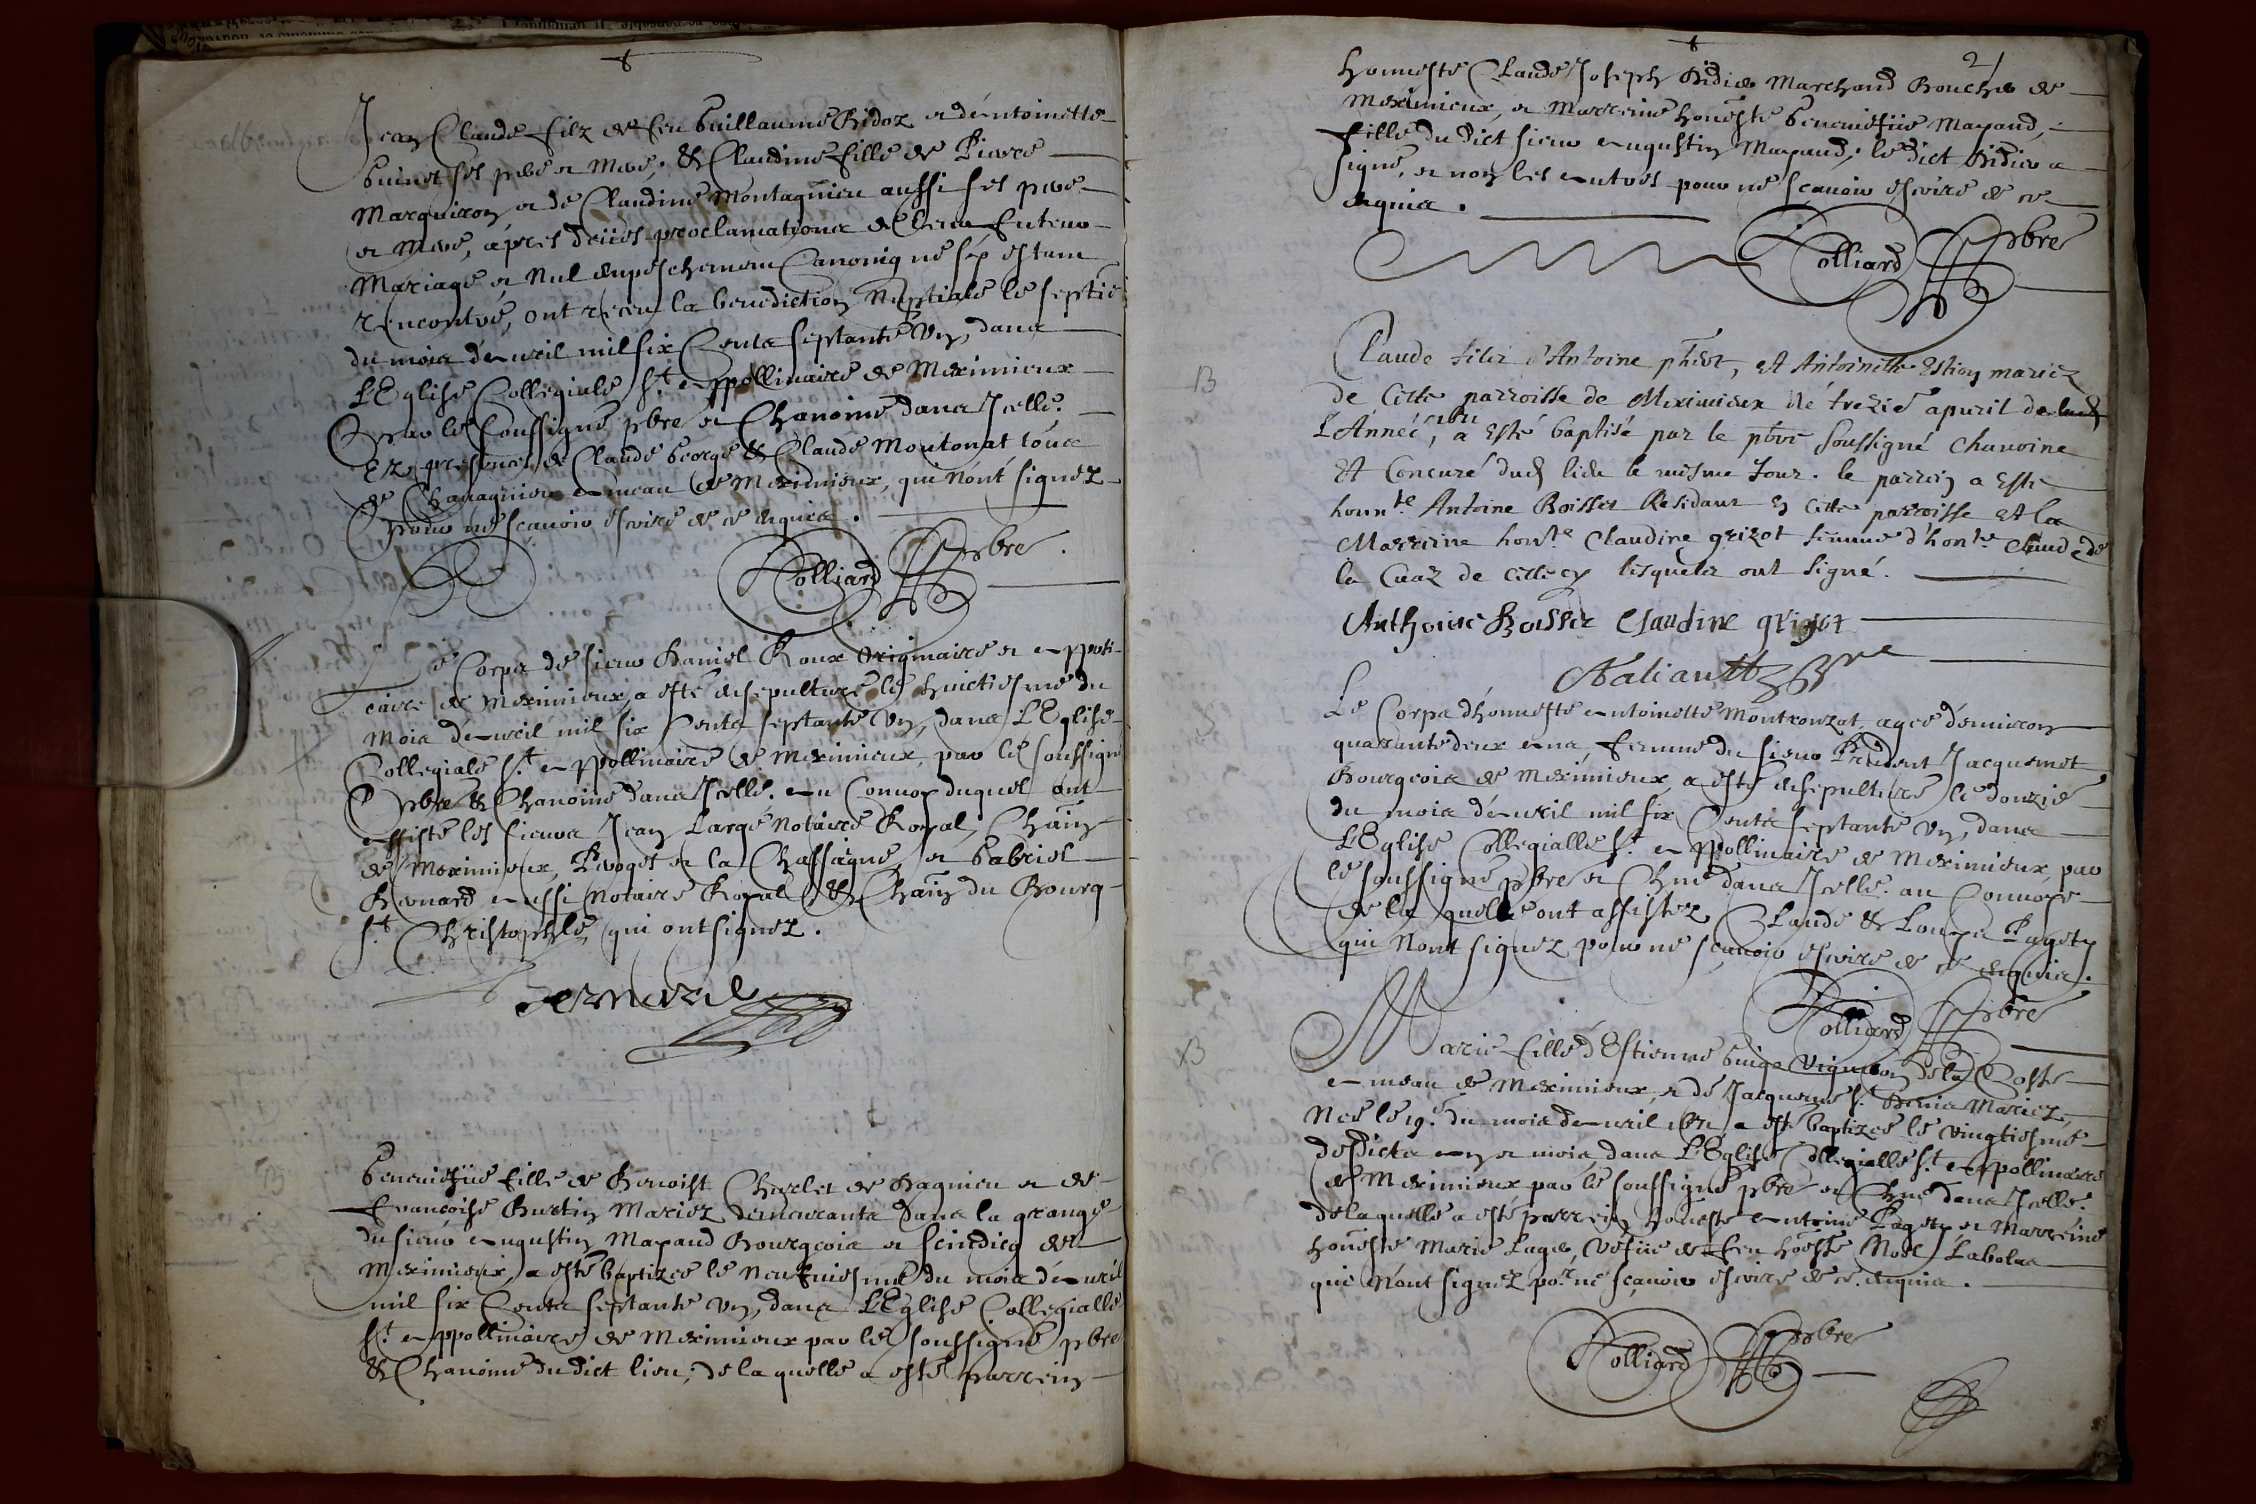 Jean Claude filz de feu Guillaume Bidoz et d'Antoinette
Guinet ses pere et mere, & Claudine fille de Pierre
Marguiron et de Claudine Montagnieu aussi ses pere
et mere, apres deües proclamations de leur futeur
Mariage et Nul empeschement Canonique s'y estant
rencontré, ont receu la benediction Nuptiale le septie
du mois d'Avril mil six Cents septante Un, dans
L'Eglise Collegiale St Appollinaire de Meximieux
par le soussigné pbre et Chanoine dans Icelle.
Ez presences de Claude George & Claude Moutonat tous
de Chavagnieu hameau de Meximieux, qui n'ont signez
pour ne sçavoir escrire de ce enquis.
Rolliard pbre
Le Corps de sieur Daniel Roux Originaire et Appoti-
caire de Meximieux, a esté ensepulturé le huictiesme du
Mois d'Avril mil six Cents septante Un, dans L'Eglise
Collegiale St Appollinaire de Meximieux, par le soussigné
pbre & Chanoine dans Icelle. Au Convoy duquel ont
assisté les sieurs Jean Large Notaire Royal, Chãin
de Meximieux, Peroges et la Chassagne, et Gabriel
Bernard aussi Notaire Royal & Chãin du Bourg
St Christophle, qui ont signez.
Bernard
Benevifüe fille de Benoist Charlet de Dagnieu et de
Françoise Burtin Mariez demeurants dans la grange
du sieur Augustin Mapaud Bourgeois et scindicq de
Meximieux, a esté baptizée le Neufviesme du mois d'Avril
mil six Cents septante Un, dans L'Eglise Collegialle
St Appollinaire de Meximieux par le soussigné pbre
& Chanoine du dict lieu; de la quelle a esté parrein
21
honneste Claude Joseph Didier Marchand Boucher de
Meximieux, et Marreine honeste Benevifüe Mapaud,
fille du dict sieur Augustin Mapaud; le dict Didier a
signé, et non les autres pour ne sçavoir escrire de ce
enquis.
Rolliard pbre
B
Claude filz d'Antoine et Antoinette Estion mariez
de cette parroisse de Meximieux Né trezié apuril de
L'Année 1671, a esté baptisé par le pbre soussigné Chanoine
Et Concuré dud lieu le mesme Jour. le parrein a esté
honnte Antoine Boisset Residant en cette parroisse et la
Marreine honte Claudine grizot femme d'honte Claude de
la Cuaz de cette lesquels ont signé.
Anthoine Boisset Claudine grizot
Le Corps d'honneste Antoinette Montrouzat, agee d'environ
quarante deux ans, femme du sieur Prudent Jacquemet
Bourgeois de Meximieux a esté ensepulturé le douzié
du mois d'Avril mil six Cents septante Un, dans
L'Eglise Collegialle St Appollinaire de Meximieux par
le soussigné pbre et Chne dans Icelle. au Convoye
de la quelle ont assistez Claude & Louys Pagety
qui N'ont signez pour ne sçavoir escrire de ce enquis.
Rolliard pbre
B
Marie fille d'Estienne Guiga Vigneron de la Coste
hameau de Meximieux, et de Jacquemé St Denis Mariez,
Née le 19e du mois d'Avril 1671 a esté baptizée le vingtiesme
desdicts an et mois dans L'Eglise Collegialle St Appollinaire
de Meximieux par le soussigné pbre et Chne dans Icelle.
de laquelle a esté parrein honeste Antoine Pagety et Marreine
honeste Marie Lager, Vefüe de feu honeste Noel Labolas
qui N'ont signez por ne sçavoir escrire de ce enquis.
Rolliard pbre